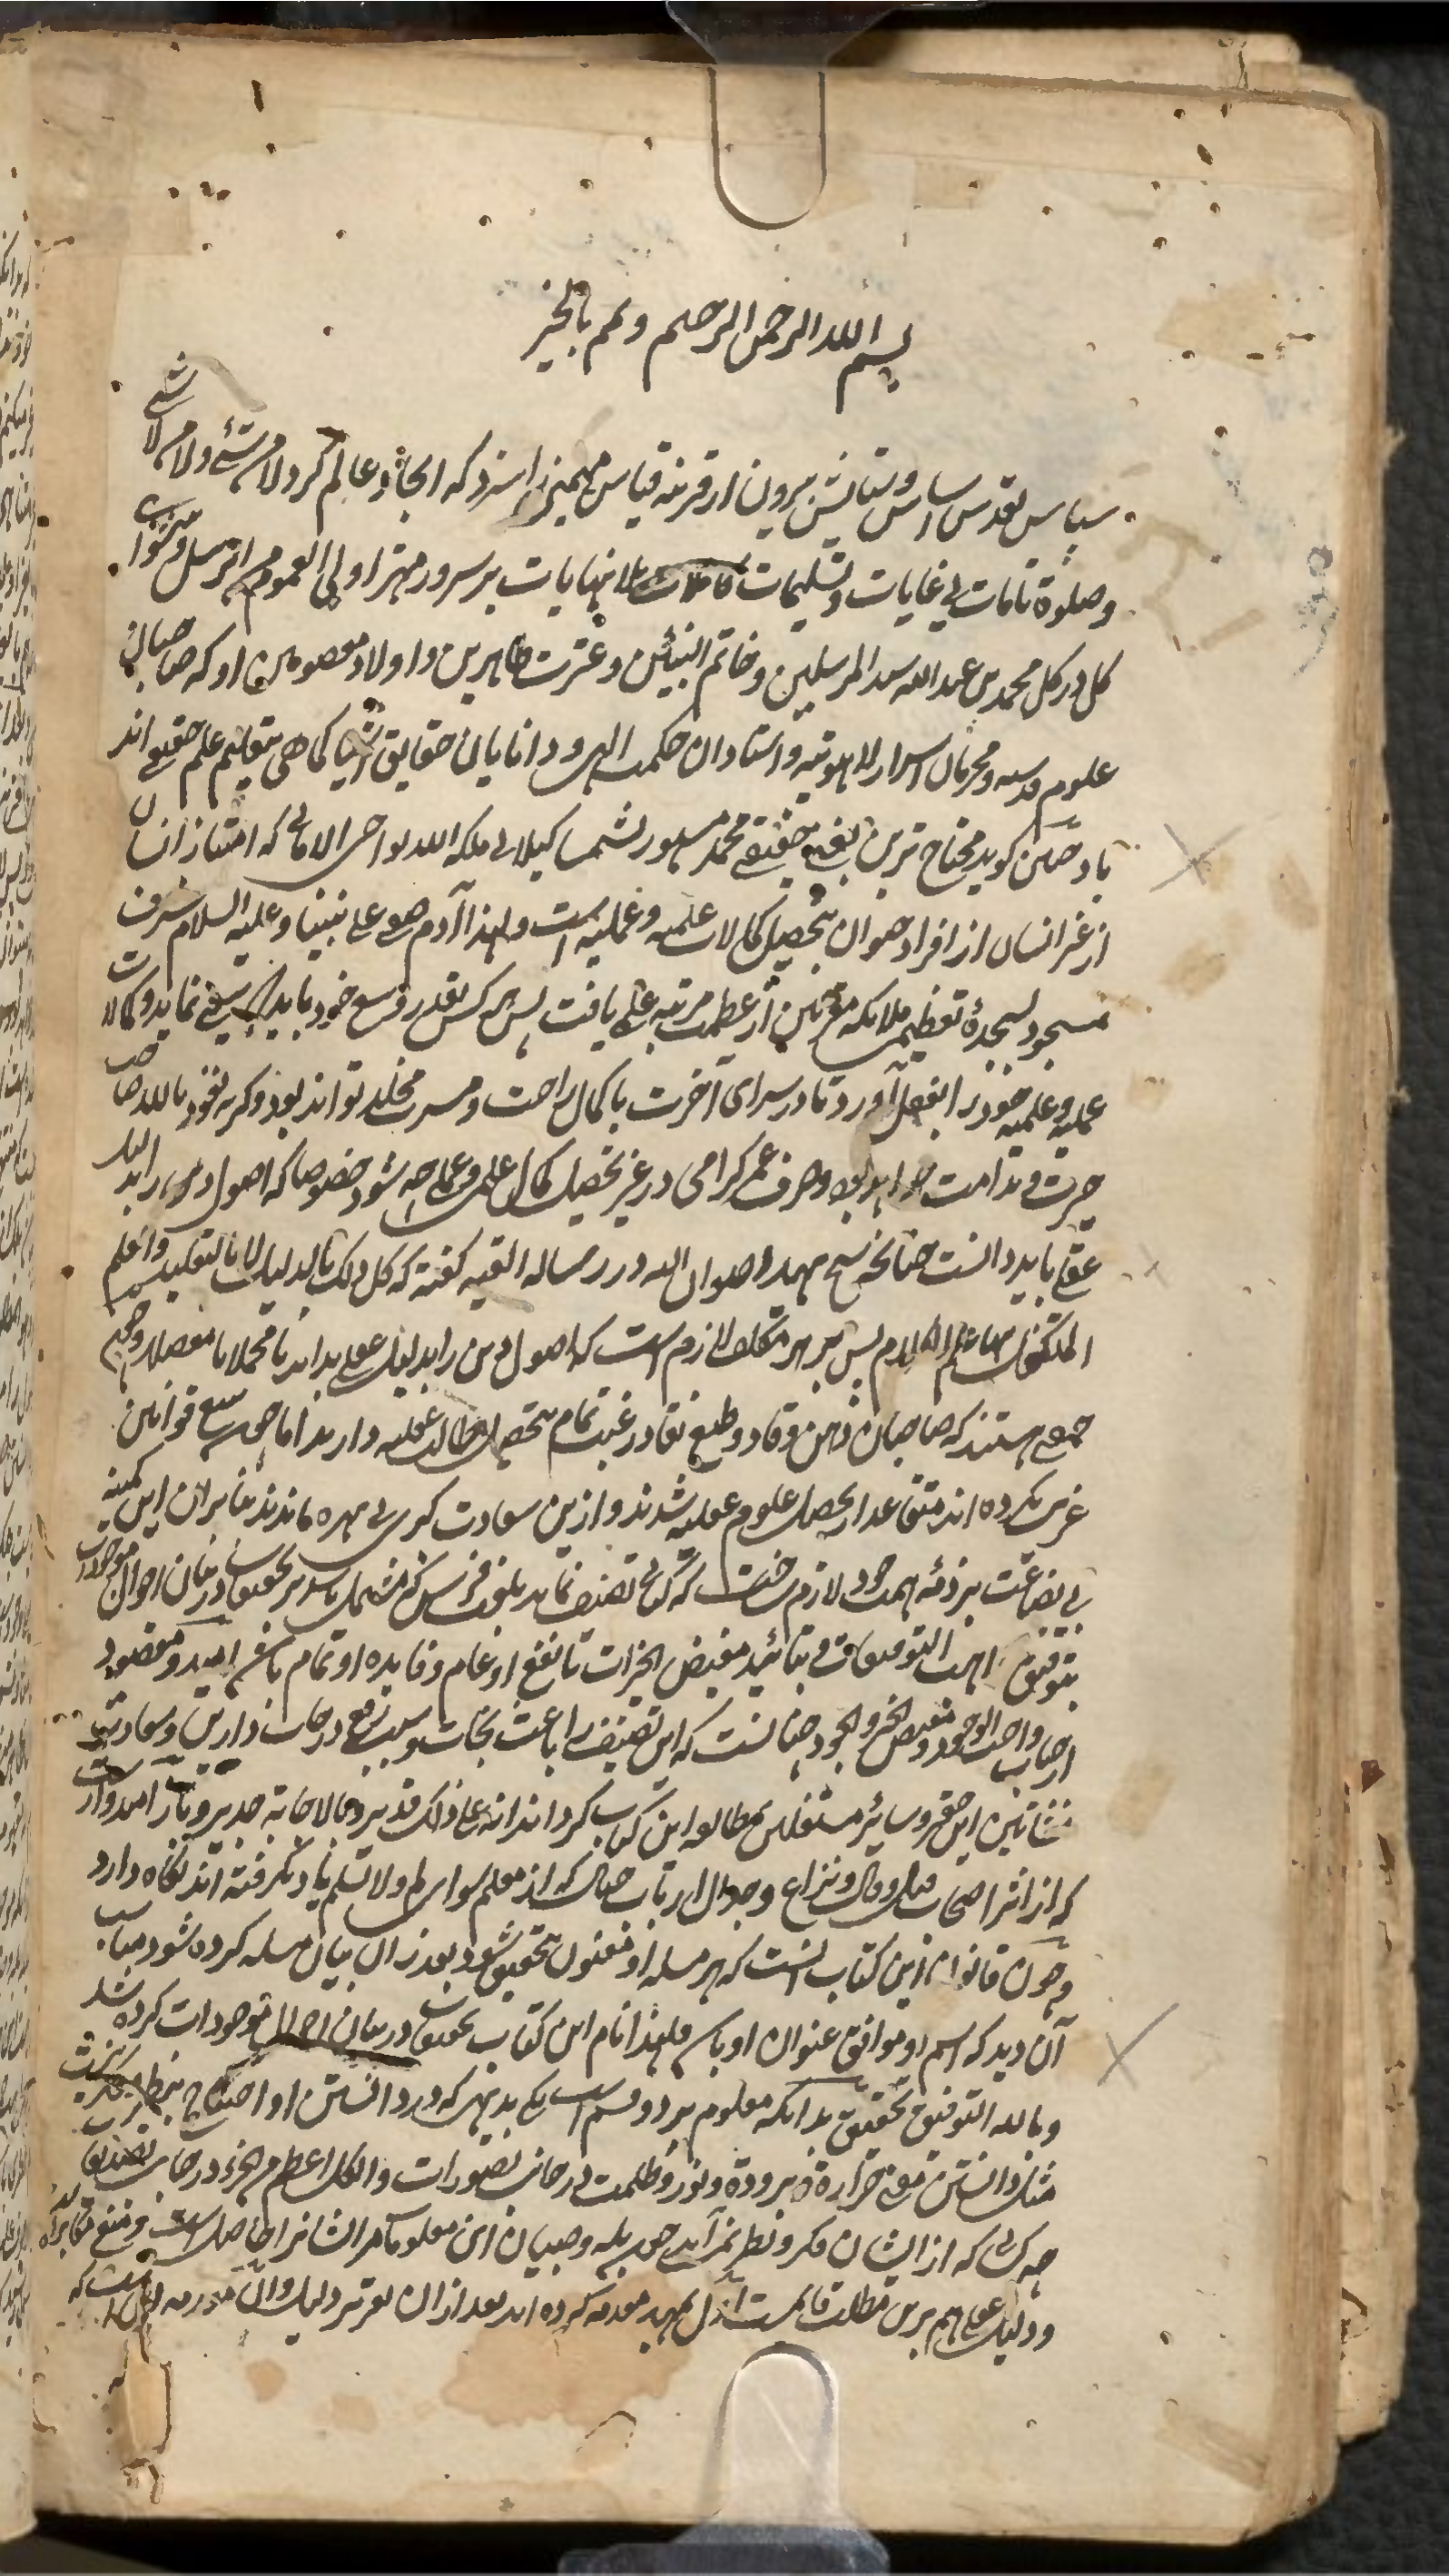 بسم الله الرحمن الرحیم و تمم بالخیر
سپاس تقدس اساس و ستایش بیرون از قرینه قیاس مهیمنی را سزد که ایجاد عالم کرد لا من شئ و لا من لا شئ
و صلوة تامات بی غایات و تسلیمات کاملات بلا نهایات بر سرور مهتر اولی العموم من الرسل و پیشوای
کل در کل محمد بن عبدالله سید المرسلین و خاتم النبیین و عترت طاهرین و اولاد معصومین او که صاحبان
علوم قدسیه و محرمان اسرار لاهوتیه و استادان حکمت الهی و دانایان حقایق اشیا کما هی بتعلیم علم حقیقی اند
باد چنین گوید محتاج ترین بغنی حقیقی محمد مشهور بشمسا کیلانی ملکه الله نواصی الامانی که امتیاز انسان
از غیر انسان از افراد حیوان بتحصیل کمالات علمیه و عملیه است و لهذا آدم صفی علی نبینا و علیه السلام شرف
مسجود بسجدهٔ تعظیم ملائکه مقربین از عظمت مرتبه علم یافت پس هر کس بقدر وسع خود باید که سعی نماید و کمالات
عملیه و علمیه خود را بفعل آورد تا در سرای آخرت با کمال راحت و مسرت مخلد تواند بود و کرنه نعوذ بالله صاحب
حیرت و ندامت خواهد بود و صرف عمر کرامی در غیر تحصیل کمال علمی و عملی چه شود خصوصا که اصول دین را بدلیل
عقلی باید دانست چنانچه شیخ شهید رضوان الله در رساله الفیه گفته که کل ذلک بالدلیل لا بالتقلید و العلم
المتکفل بها علم الکلام پس بر هر مکلف لازم است که اصول دین را بدلیل عقلی بداند یا مجملا یا مفصلا و چون
جمعی هستند که صاحبان ذهن وقاد و طبع نقاد و رغبت تمام بتحصیل مطالب عقلیه دارند اما چون تتبع قوانین
عربی نکرده اند متقاعد از تحصیل علوم عقلیه شدند و ازین سعادت کبری بی بهره ماندند بنابران این کمینه
بی بضاعت بر ذمه همت خود لازم ساخت که کتابی تصنیف نماید بلغت فرس که مشتمل باشد بر تحقیقات در بیان احوال موجودات
بتوفیق اهب التوفیقات و بتائید مفیض الخیرات تا نفع او عام و فایده او تمام باشد امید و مقصود
از جناب واجب الوجود و مفیض الخیر و الجود چنانست که این تصنیف را باعث نجات و سبب رفع درجات دارین و سعادت
نشاتین این حقیر و سائر مشتغلین بمطالعه این کتاب کرداند انه علی ذلک قدیر و بالاجابة جدیر و نیز امیدوار است
که از اثر اصحاب قیل و قال و نزاع و جدال ارباب جدال که از معلم سوای لم و لا نسلم یاد نکرفته اند نگاه دارد
و چون قانون این کتاب انست که هر مسله او معنون بتحقیق شود و بعد از ان بیان مسله کرده شود مناسب
آن دید که اسم او موافق عنوان او باشد و لهذا نام این کتاب تحقیقات در بیان احوال موجودات کرده شد
و بالله التوفیق تحقیق بدانکه معلوم بر دو قسم است یکی بدیهی که در دانستن او احتیاج بنظر و فکر نیست
مثل دانستن معنی حرارة و برودة و نور و ظلمت در جانب تصورات و الکل اعظم من الجزء در جانب تصدیقات
چه کسانی که از ایشان فکر و نظر نمی آید چون بله و صبیان این معلومات مر ایشانرا حاصل است و منع مکابره است
و دلیل عقلی هم برین مطلب قایمست اول تمهید مقدمه کرده اند بعد از ان تقریر دلیل و ان مقدمه اینست که